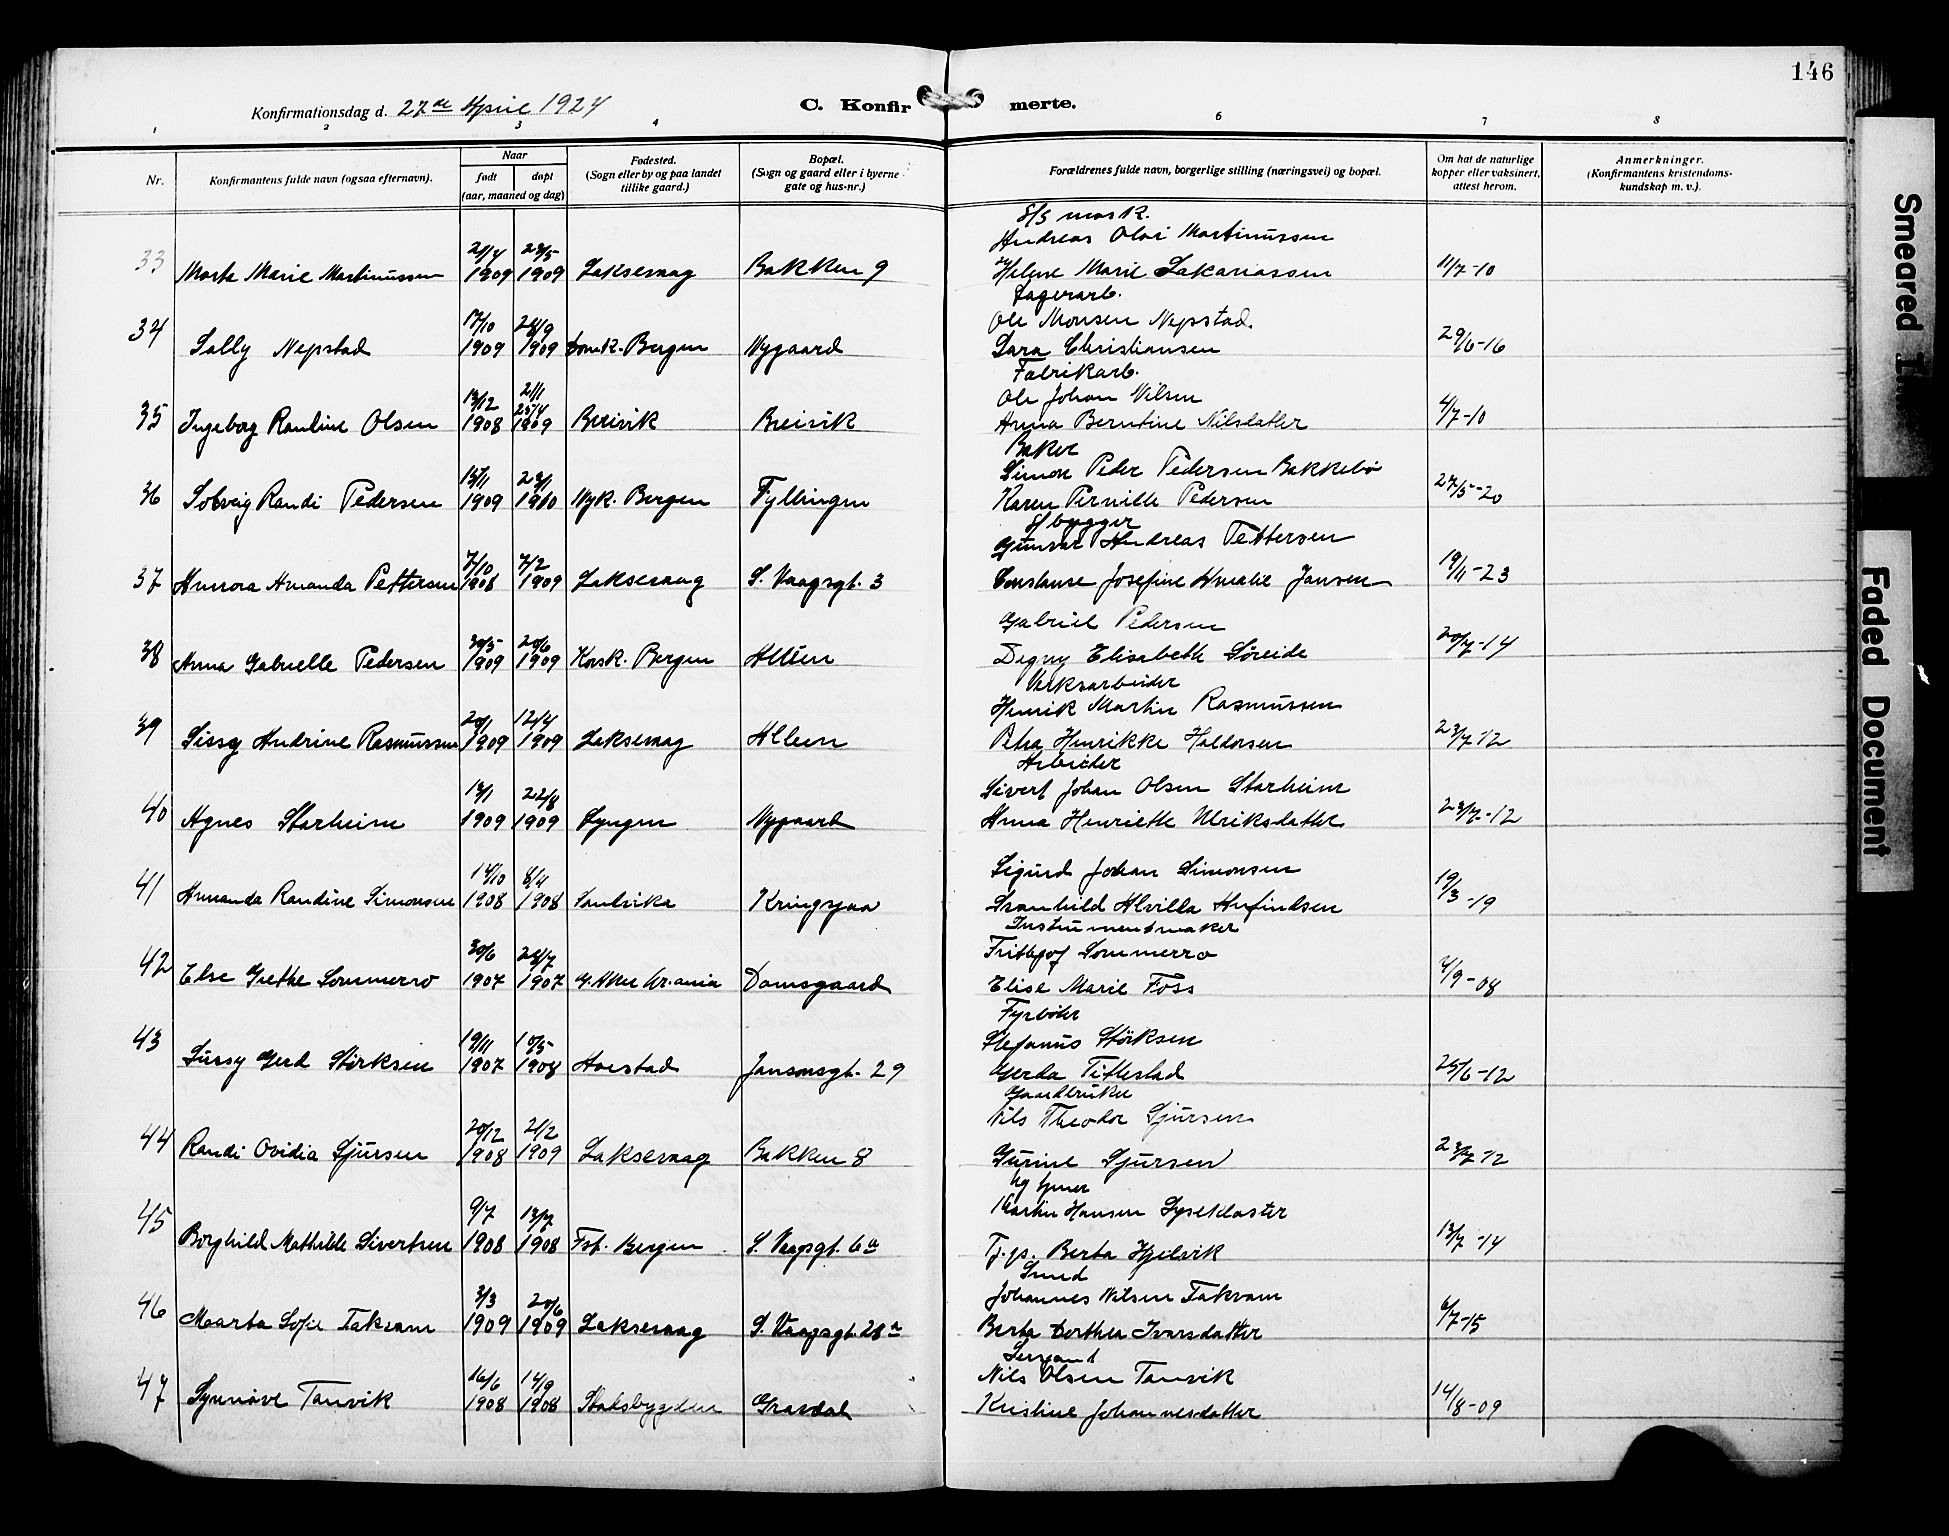 146
Konfirmationsdag d. 27de April 1924
C. Konfirmerte.
1 2 3 4 6 7 8
Nr.
Konfirmantens fulde navn (ogsaa efternavn).
Naar
født
døpt
(aar, maaned og dag)
Fødested.
(Sogn eller by og paa landet
tillike gaard.)
Bopæl.
(Sogn og gaard eller i byerne
gate og hus-nr.)
Forældrenes fulde navn, borgerlige stilling (næringsvei) og bopæl.
Om hat de naturlige
kopper eller vaksinert,
attest herom.
Anmerkninger.
(Konfirmantens kristendoms-
kundskap m. v.).
S/S mask.
Andreas Olai Martinussen
33 Marta Marie Martinussen 21/4 1909 23/5 1909 Laksevaag Bakken 9 Helene Marie Sakariassen 11/7-10
Lagerarb.
Ole Monsen Nepstad.
34 Sally Nepstad 17/10 1909 28/9 1909 Domk. Bergen Nygaard Sara Christiansen 29/6-16
Fabrikarb.
Ole Johan Nilsen
35 Ingeborg Rantine Olsen 13/12 1908 21/1 25/4 1909 Breivik Breivik Anna Berntine Nilsdatter 4/7-10
Baker
Simon Peder Pedersen Bakkebø
36 Solveig Randi Pedersen 15/11 1909 23/1 1910 Nyk. Bergen Fyllingen Karen Pernille Pedersen 27/5-20
S/bygger
Gunvar Andreas Pettersen
37 Aurora Amanda Pettersen 7/10 1908 7/2 1909 Laksevaag S. Vaagsgt. 3 Constanse Josefine Amalie Jansen 19/11-23
Gabriel Pedersen
38 Anna Gabrielle Pedersen 30/5 1909 20/6 1909 Korsk. Bergen Alléen Dagny Elisabeth Søreide 20/7-14
Verksarbeider
Henrik Martin Rasmussen
39 Sissy Andrine Rasmussen 20/1 1909 12/4 1909 Laksevaag Alleen Petra Henrikke Haldorsen 23/7 12
Arbeider
Sivert Johan Olsen Starheim
40 Agnes Starheim 13/1 1909 22/8 1909 Lyngen Nygaard Anna Henriette Ulriksdatter 23/7-12
Sigurd Johan Simonsen
41 Amanda Randine Simonsen 14/10 1908 8/11 1908 Sandvika Kringsjaa Svanhild Alvilda Arfindsen 19/3-19
Instrumentmaker
Frithjof Sommerro
42 Else Grethe Sommerro 30/6 1907 28/7 1907 G. Aker Kr.ania Damsgaard Elise Marie Foss 4/9-08
Fyrbøter
Stefanus Størksen
43 Sussy Gerd Størksen 19/11 1907 10/5 1908 Arestad Jansonsgt. 29 Gerda Titlestad 25/6-12
Gaardbruker
Nils Theodor Sjursen
44 Randi Ovidia Sjursen 20/12 1908 21/2 1909 Laksevaag Bakken 8 Gurine Sjursen 23/7 12
Martin Hansen Lyseklaster
45 Borghild Mathilde Sivertsen 9/7 1908 13/7 1908 Fst. Bergen S. Vaagsgt. 6a Tj.p. Berta Hjelvik 13/7-14
Smed
Johannes Nilsen Takvam
46 Marta Sofie Takvam 3/3 1909 20/6 1909 Laksevaag S. Vaagsgt. 28a Berta Dorthea Ivarsdatter 6/7-15
Sersjant
Nils Olsen Tanvik
47 Synnøve Tanvik 16/6 1908 14/9 1908 Stadsbygden Gravdal Kristine Johannesdatter 14/8-09
Smeared
Faded Document